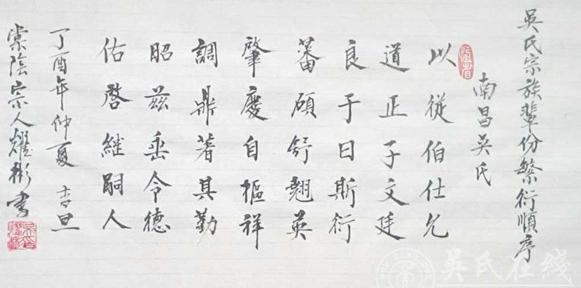 吳氏宗族輩份繁衍順序
南昌吳氏
以從伯仕允
道正子文廷
良于曰斯衍
蕃碩舒翹英
肇慶自樞祥
調鼎著其勤
昭茲垂令德
佑啓繼嗣人
丁酉年仲夏
棠陰宗人耀彬書
吴氏在线